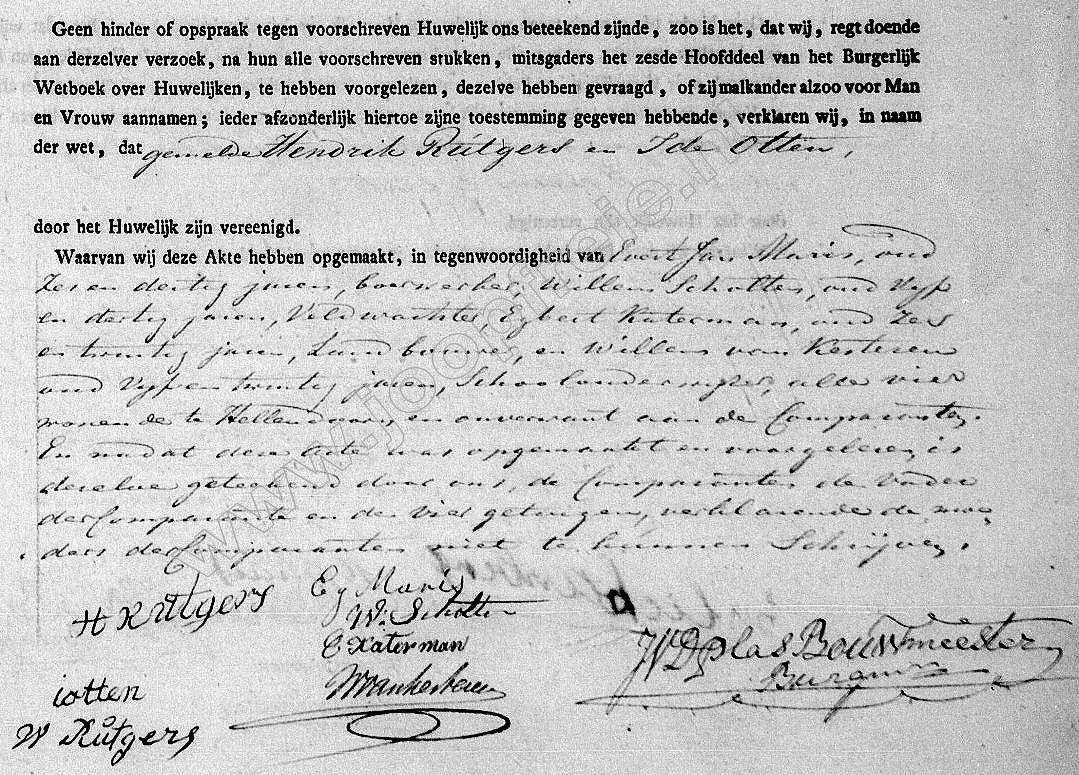 Geen hinder of opspraak tegen voorschreven Huwelijk ons beteekend zijnde, zoo is het, dat wij, regt doende
aan derzelver verzoek, na hun alle voorschreven stukken, mitsgaders het zesde Hoofddeel van het Burgerlijk
Wetboek over Huwelijken, te hebben voorgelezen, dezelve hebben gevraagd, of zij malkander alzoo voor Man
en Vrouw aannamen; ieder afzonderlijk hiertoe zijne toestemming gegeven hebbende, verklaren wij, in naam
der wet, dat gemelde Hendrik Rútgers en Ide Otten,
door het Huwelijk zijn vereenigd.
Waarvan wij deze Akte hebben opgemaakt, in tegenwoordigheid van Evert Jan Maris, oud
Zes en dertig jaren, boerwerker, Willem Scholten, oud Vyf
en dertig jaren, Veldwachter, Egbert Katerman, oud Zes
en twintig jaren, Landbouwer, en Willem van Kesteren
oud Vyf en twintig jaren, Schoolonderwyzer, alle vier
wonende te Hellendoorn, en onverwant aan de Comparanten.
En nadat deze acte was opgemaakt en voorgelezen, is
dezelve geteekend door ons, de Comparanten de Vader
der Comparante en de vier getuigen, verklarende de moe-
ders der Comparanten niet te kunnen Schrijven.
H Rútgers
E J Maris
W. Scholten
E Katerman
W van Kesteren
J W D Plas Bouwmeester
Burgemr
iotten
W Rútgers
www.joopfietje.nl